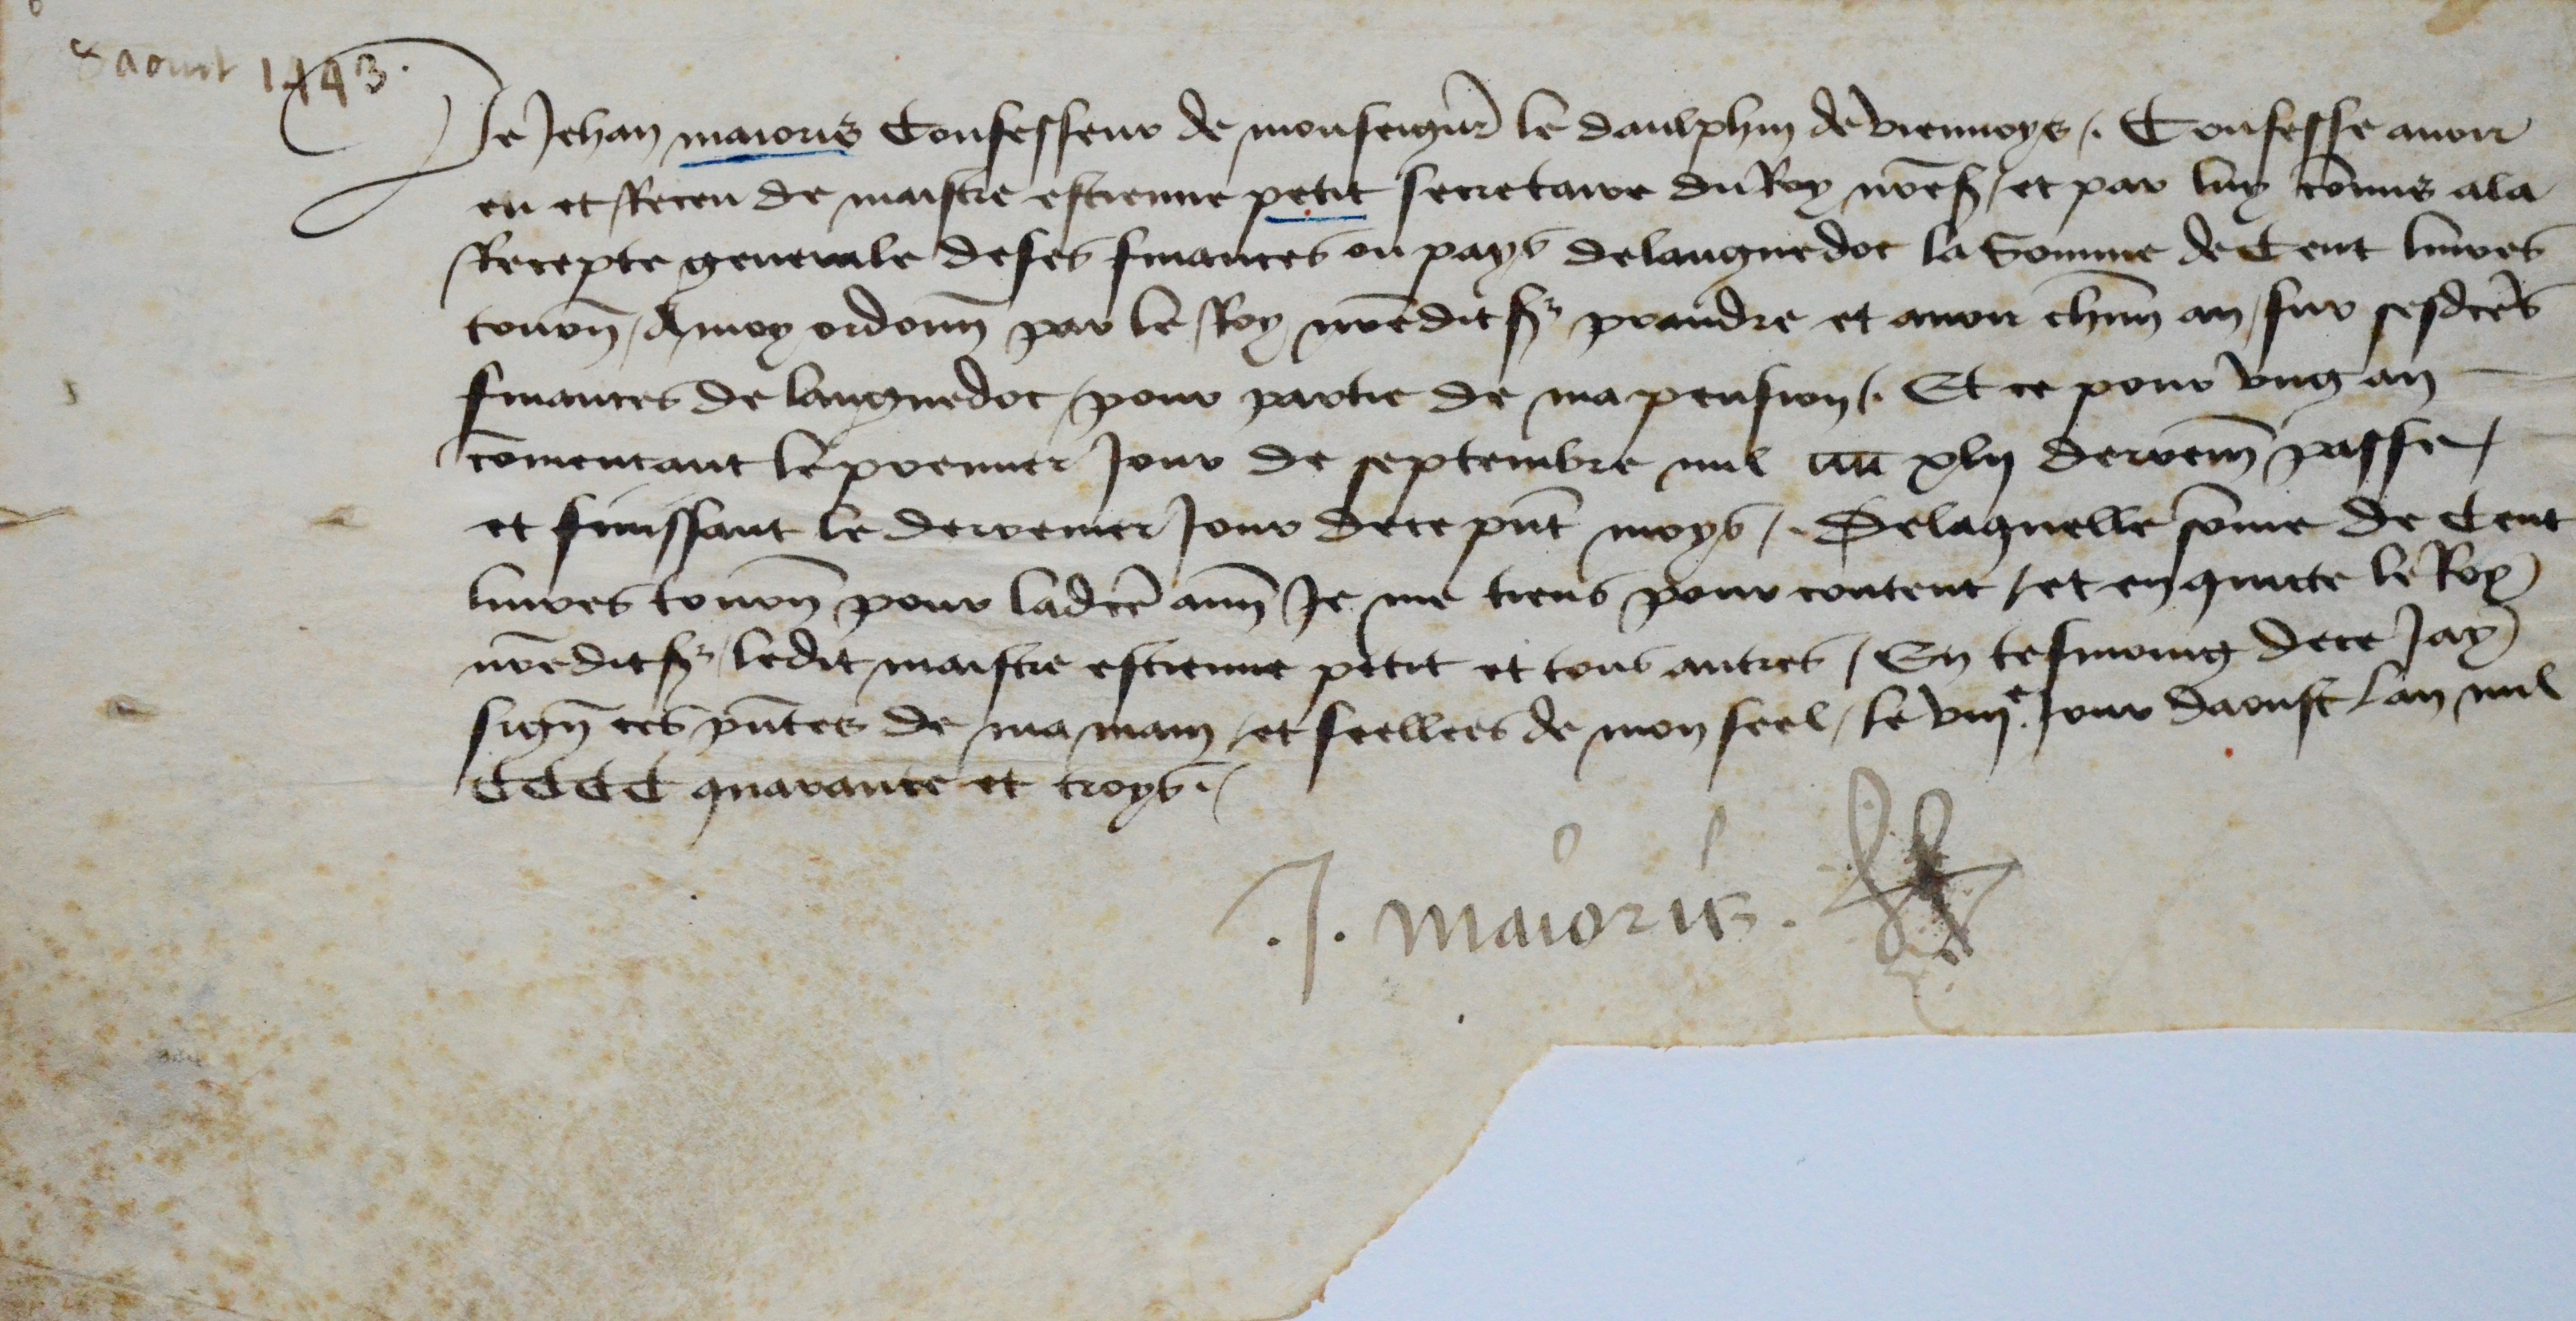 8 aoust 1443.
Je Jehan maioris Confesseur de monseigñr le daulphin de viennoys /. Confesse avoir
eu et Receu de maistre estienne petit secretaire du Roy nr̄e sʳ / et par luy cōmis a la
Recepte generale de ses finances ou pays de languedoc la Somme de Cent livres
tourñ / A moy ordonñ par le Roy nr̄edit sʳ prandre et avoir ch̄un an / sur sesdc̄es
finances de languedoc / pour partie de ma pension /. Et ce pour ung an
cōmencant le premier Jour de septembre mil iiii xlii derrem̄ passe /
et finissant le derremer Jour de ce pñt moys /. De laquelle sōme de Cent
livres tourñ pour ladc̄e anñ Je me tiens pour content / et en quicte le Roy
nr̄edit sʳ / ledit maistre estienne petit et tous autres / En tesmoing de ce Jay
signe ces pñtes de ma main / et seellees de mon seel / le viijᵉ. Jour daoust Lan mil
CCCC quarante et troys ./
.J. maioris.